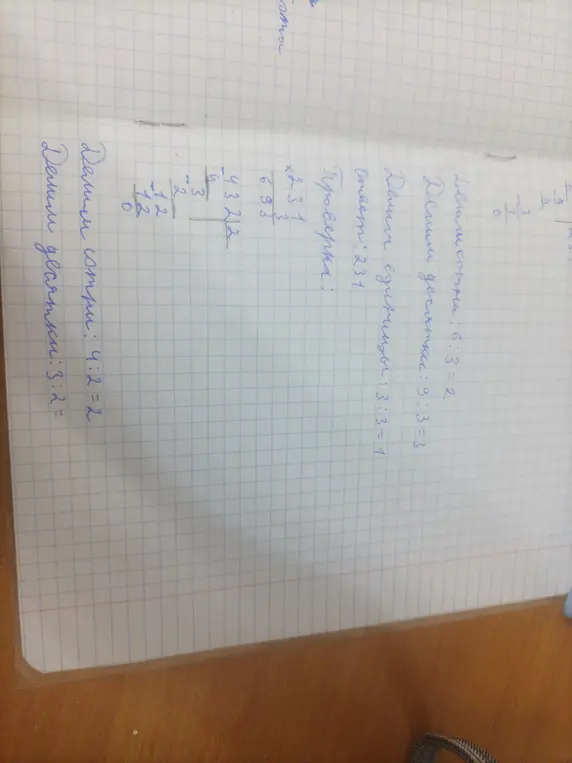 Делим сотни: 6:3=2
Делим десятки: 9:3=3
Делим единицы: 3:3=1
Ответ: 231
Проверка:
×231
3
693
-432|2
4
-3
2
-12
12
0
Делим сотни: 4:2=2
Делим десятки: 3:2=